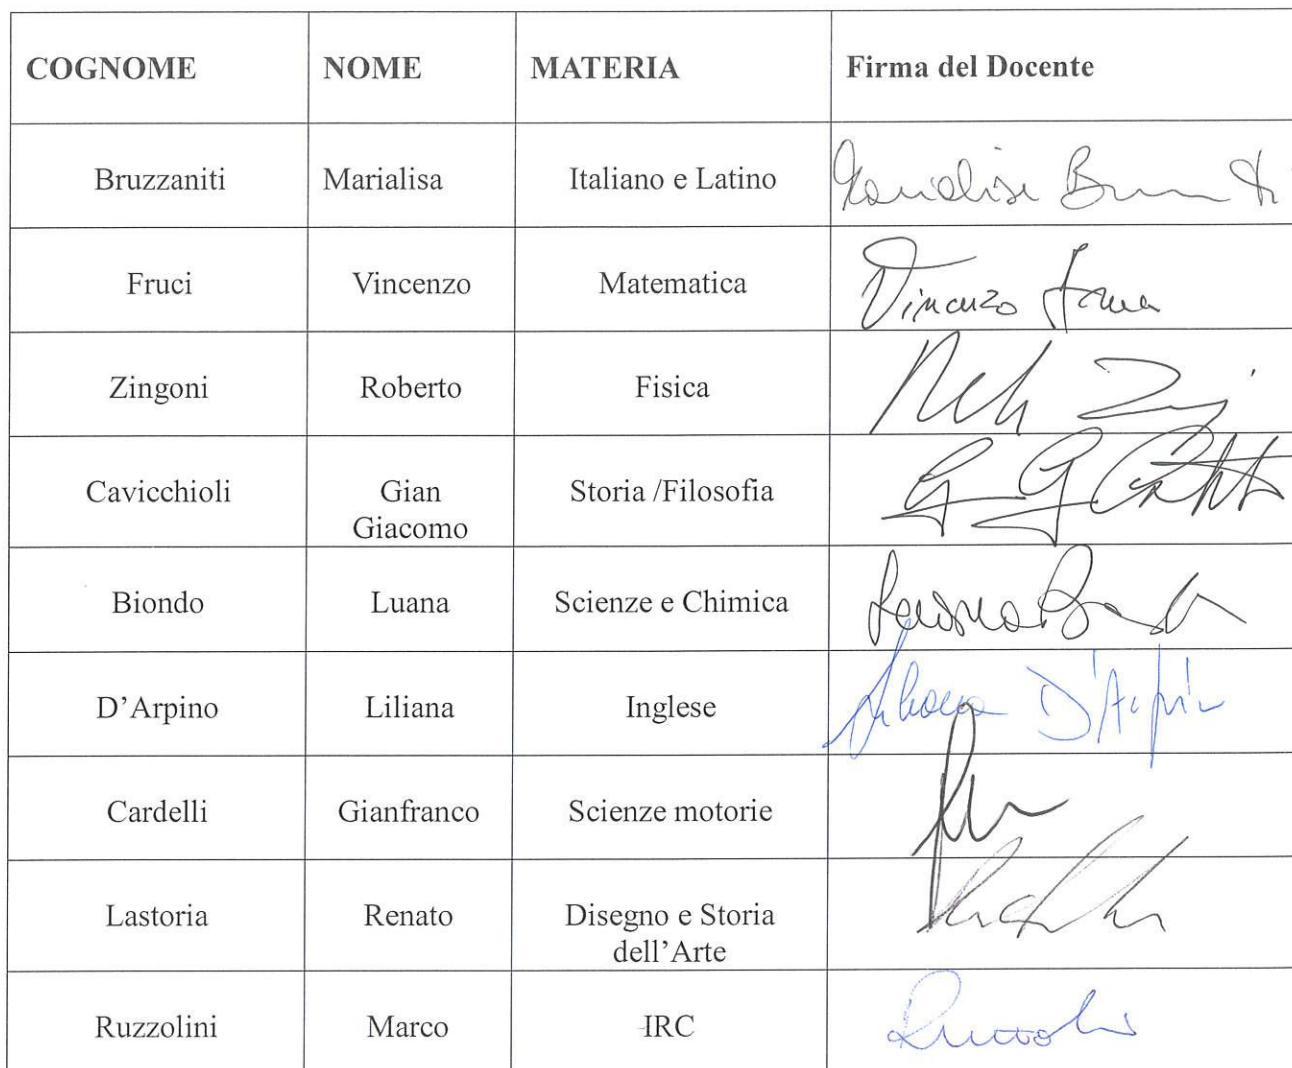 COGNOME NOME MATERIA Firma del Docente
Bruzzaniti Marialisa Italiano e Latino Marialisa
Fruci Vincenzo Matematica Vincenzo
Zingoni Roberto Fisica
Cavicchioli Gian Storia /Filosofia
Giacomo
Biondo Luana Scienze e Chimica
D'Arpino Liliana Inglese Liliana D'Arpin
Cardelli Gianfranco Scienze motorie
Lastoria Renato Disegno e Storia
dell'Arte
Ruzzolini Marco IRC